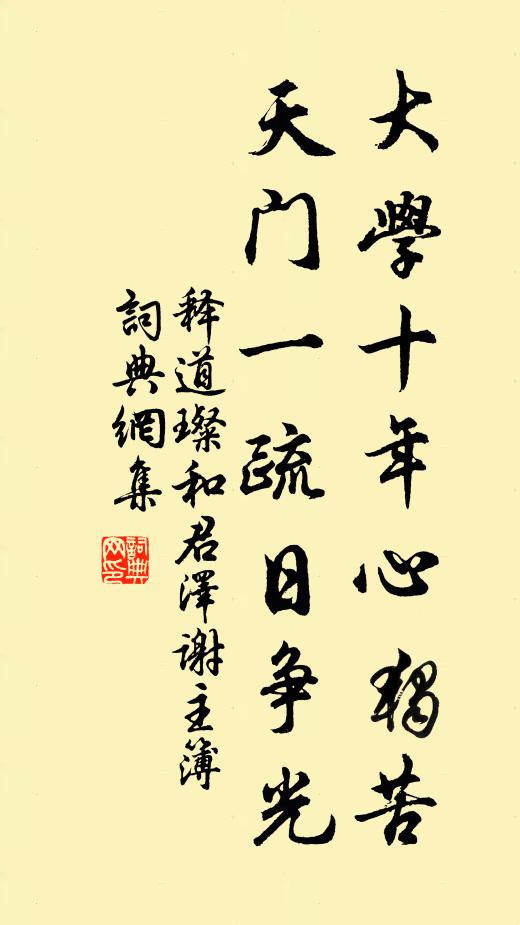 大學十年心獨苦
天門一疏日争光
释道璨和君澤謝主簿
詞典網集
詞典網印